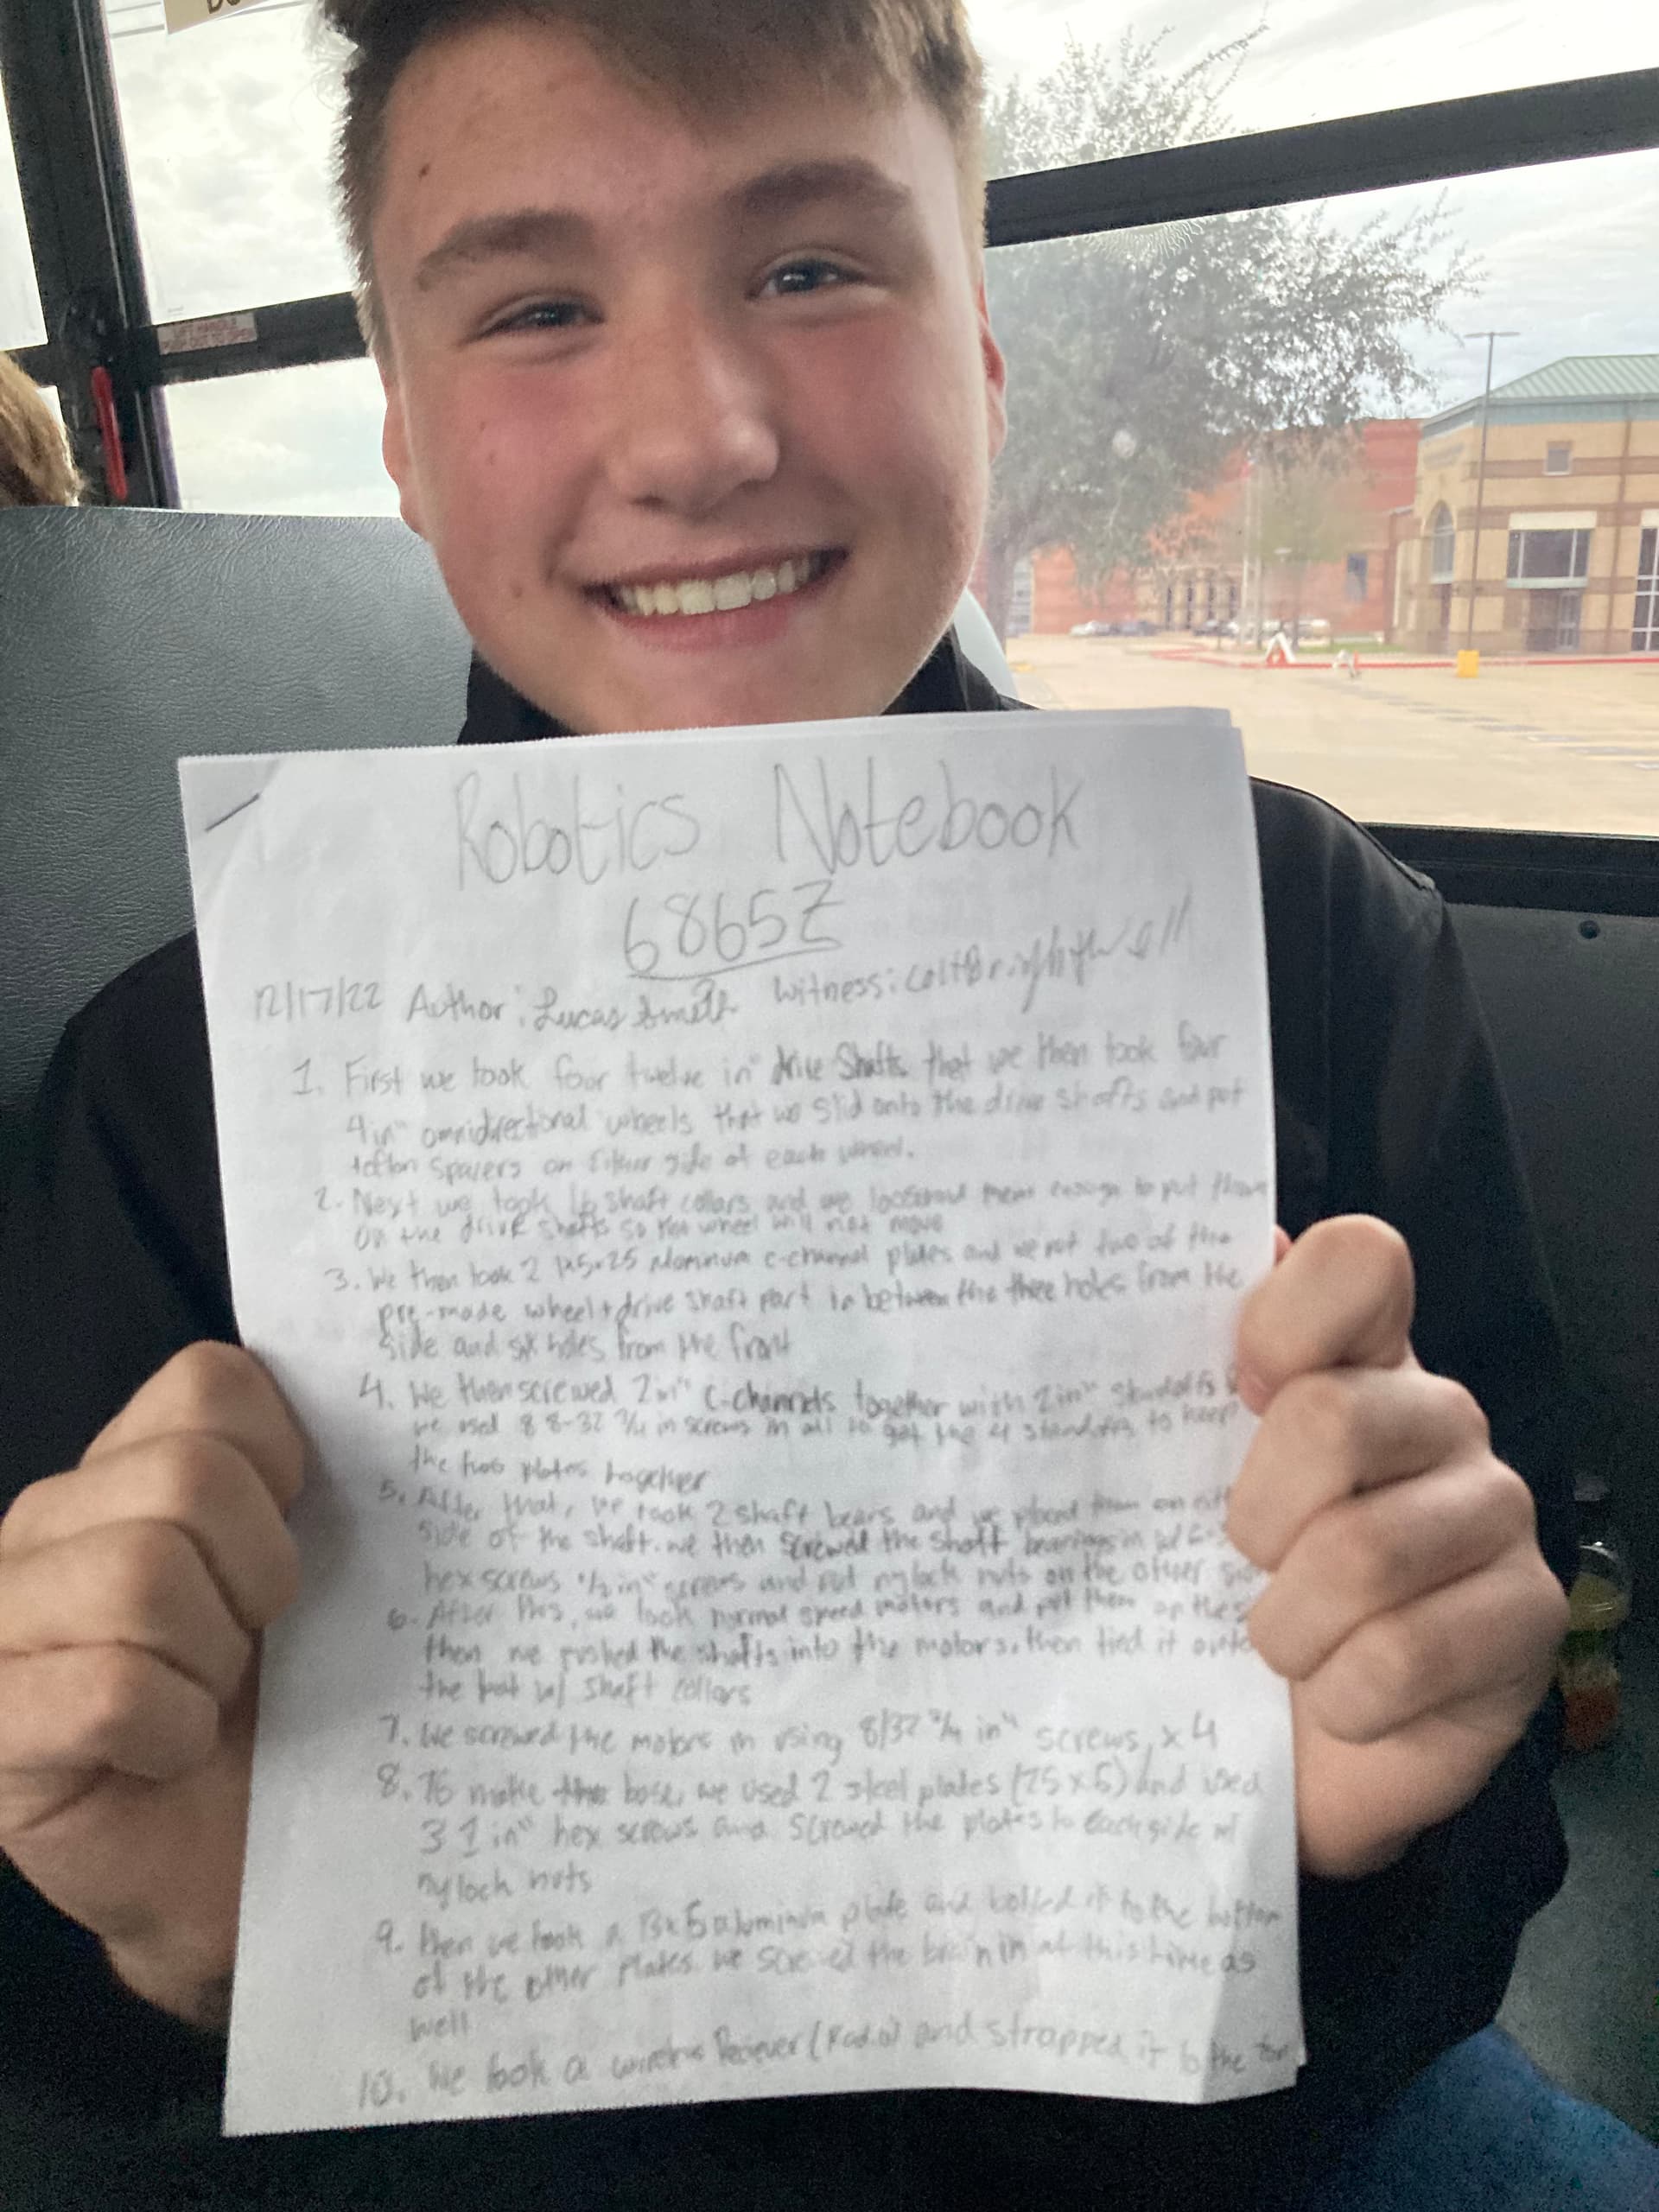 Robotics Notebook
6865Z
12/17/22 Author: Lucas Smith Witness: Colt Brightwell
1. First we took four twelve in" drive shafts that we then took four
4in" omnidirectional wheels that we slid onto the drive shafts and put
teflon spacers on either side of each wheel.
2. Next we took 16 shaft collars and we loosened them enough to put them
on the drive shafts so the wheel will not move
3. We then took 2 1x5x25 aluminum c-channel plates and we put two of the
pre-made wheel+drive shaft part in between the three holes from the
side and six holes from the front
4. We then screwed 2in" c-channels together with 2in" standoffs
we used 8 8-32 3/4 in screws in all to get the 4 standoffs to keep
the two plates together
5. After that, we took 2 shaft bears and we placed them on
side of the shaft. we then screwed the shaft bearings in w/
hex screws 1/2 in" screws and put nylock nuts on the other
6. After this, we took normal speed motors and put them on
then we pushed the shafts into the motors, then tied it onto
the bot w/ shaft collars
7. We screwed the motors in using 8/32 3/4 in" screws, x4
8. To make the base, we used 2 steel plates (25x5) and used
3 1 in" hex screws and screwed the plates to each side w/
nylock nuts
9. then we took a 15x5 aluminum plate and bolted it to the bottom
of the other plates. we screwed the brain in at this time as
well
10. We took a wireless Reciever (Radio) and strapped it to the